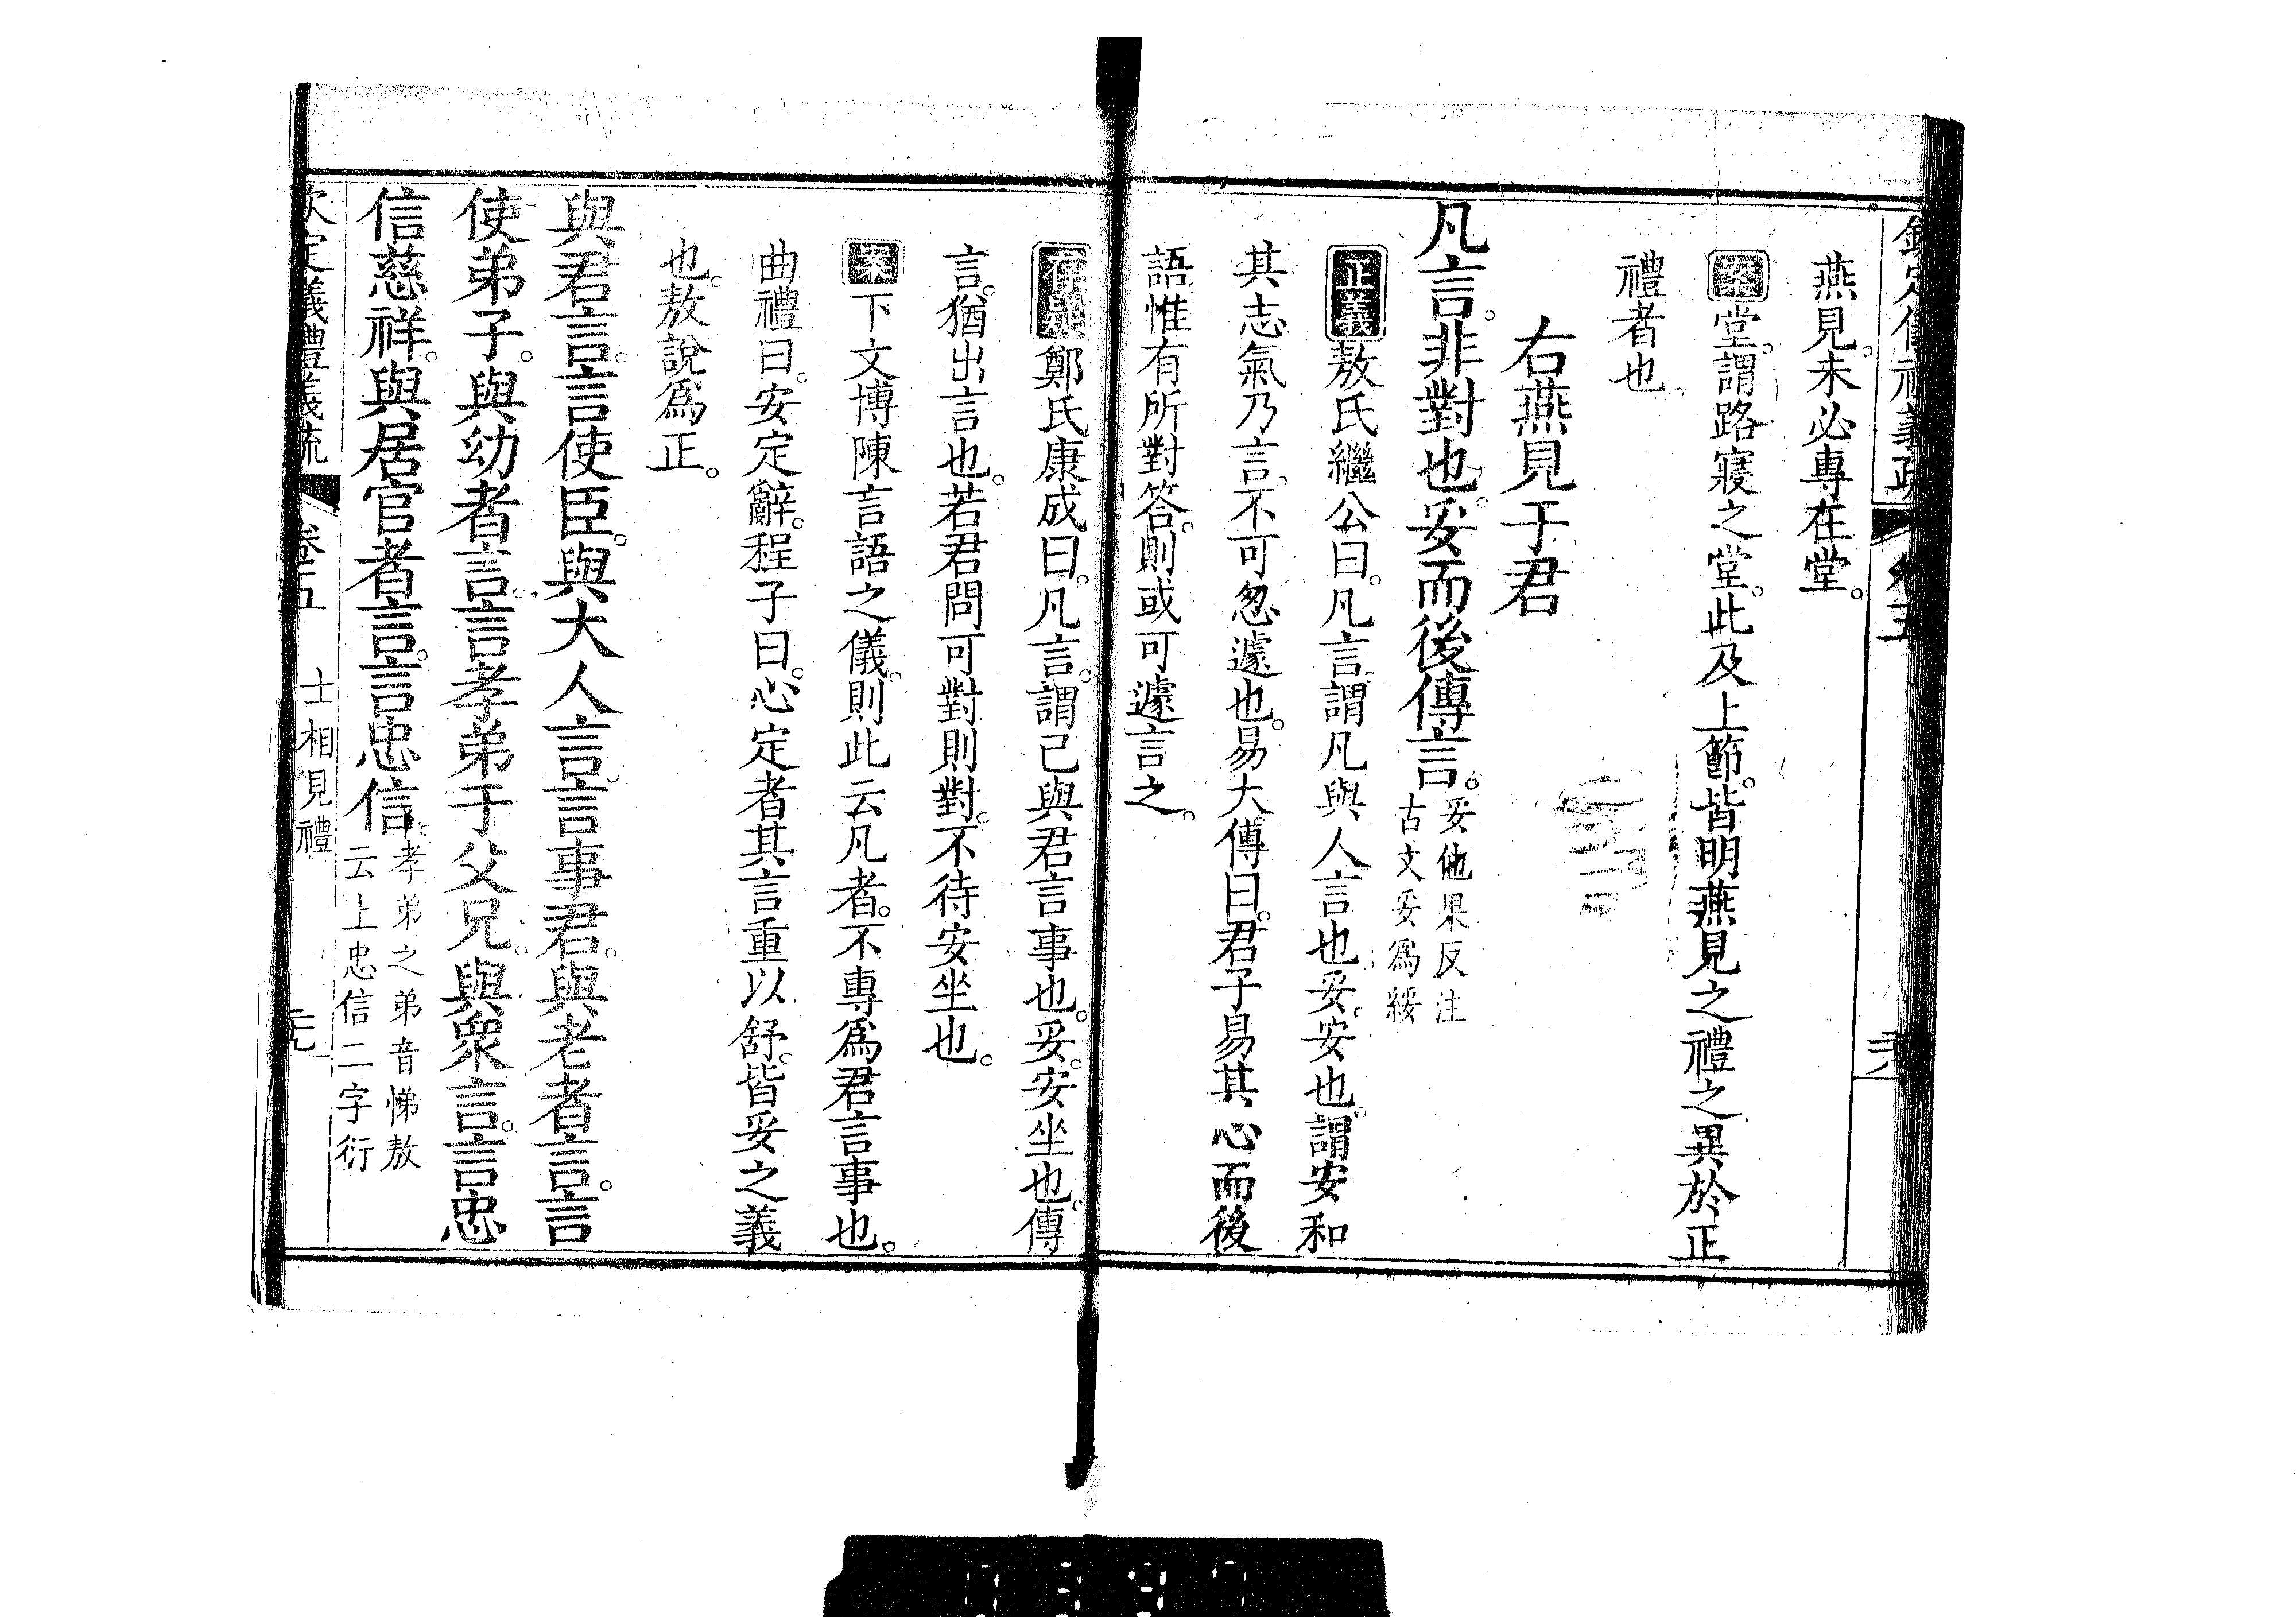 欽定儀禮義疏 卷五 
燕見。未必專在堂。
案堂。謂路寢之堂。此及上節。皆明燕見之禮之異於正
禮者也
右燕見于君
凡言。非對也。妥而後傳言。妥他果反注
古文妥為綏
正義敖氏繼公曰。凡言。謂凡與人言也。妥。安也。謂安和
其志氣乃言。不可怱遽也。易大傳曰。君子易其心而後
語惟有所對答。則或可遽言之。
存疑鄭氏康成曰。凡言。謂己與君言事也。妥。安坐也。傳
言。猶出言也。若君問可對則對。不待安坐也。
案下文博陳言語之儀。則此云凡者。不專為君言事也。
曲禮曰。安定辭。程子曰。心定者其言重以舒。皆妥之義
也。敖說為正。
與君言。言使臣。與大人言。言事君。與老者言。言
使弟子。與幼者言。言孝弟于父兄。與衆言。言忠
信慈祥。與居官者言。言忠信。孝弟之弟音悌敖
云上忠信二字衍
欽定儀禮義疏 卷五 士相見禮